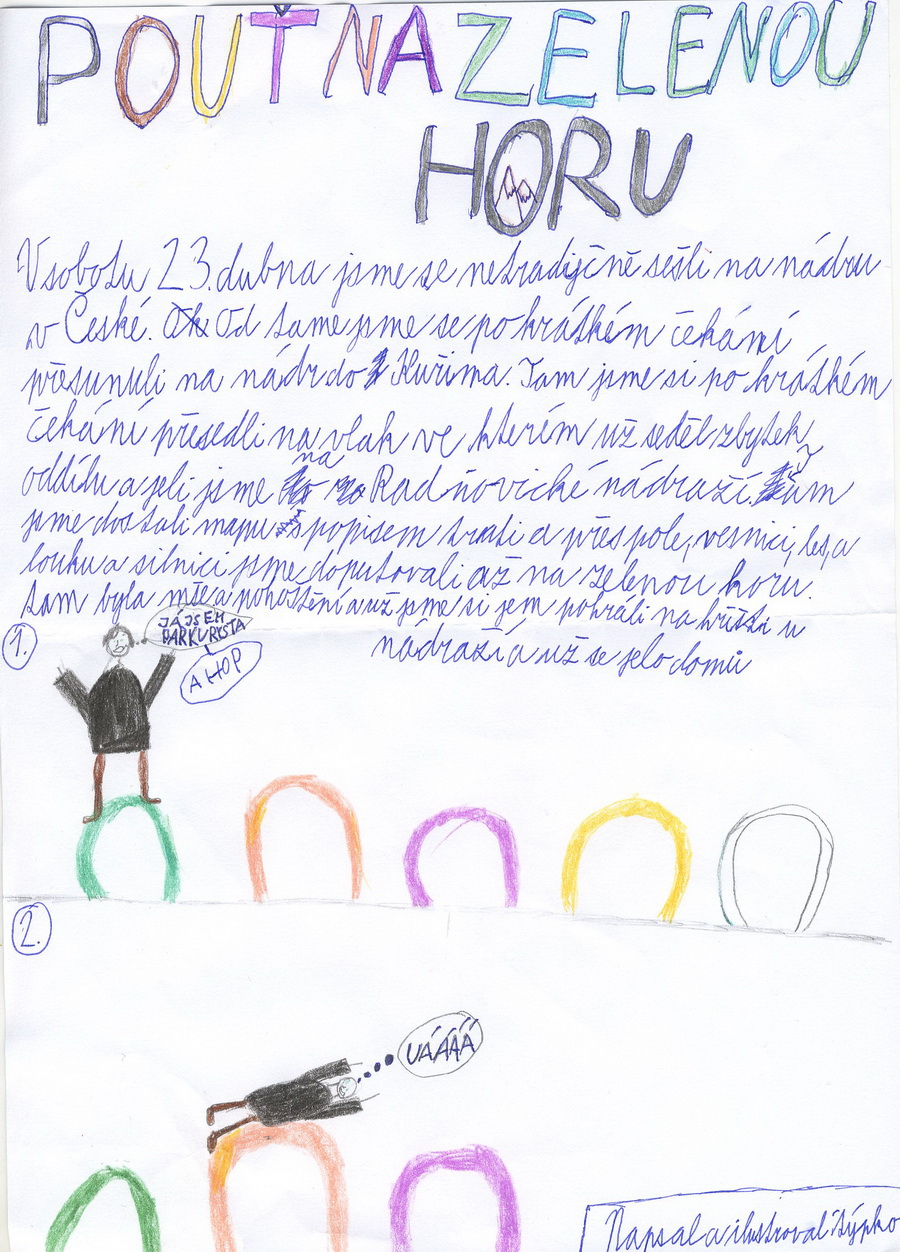 POUŤ NA ZELENOU
HORU
V sobotu 23. dubna jsme se netradičně sešli na nádru
v České. Od tamejsme se po krátkém čekání
přesunuli na nádr do Kuřima. Tam jsme si po krátkém
čekání přesedli na vlak ve kterém už seděl zbytek
oddílu a jeli jsme na Radňovické nádraží. Tam
jsme dostali mapu s popisem trati a přes pole, vesnici, les, a
louku a silnici jsme doputovali až na zelenou horu.
tam byla mše a pohoštění a už jsme si jem pohráli na hřišti u
nádraží a už se jelo domů
1.
JÁ JSEM
PARKURYSTA
A HOP
2.
UÁÁÁÁ
Napsal a ilustroval týpko